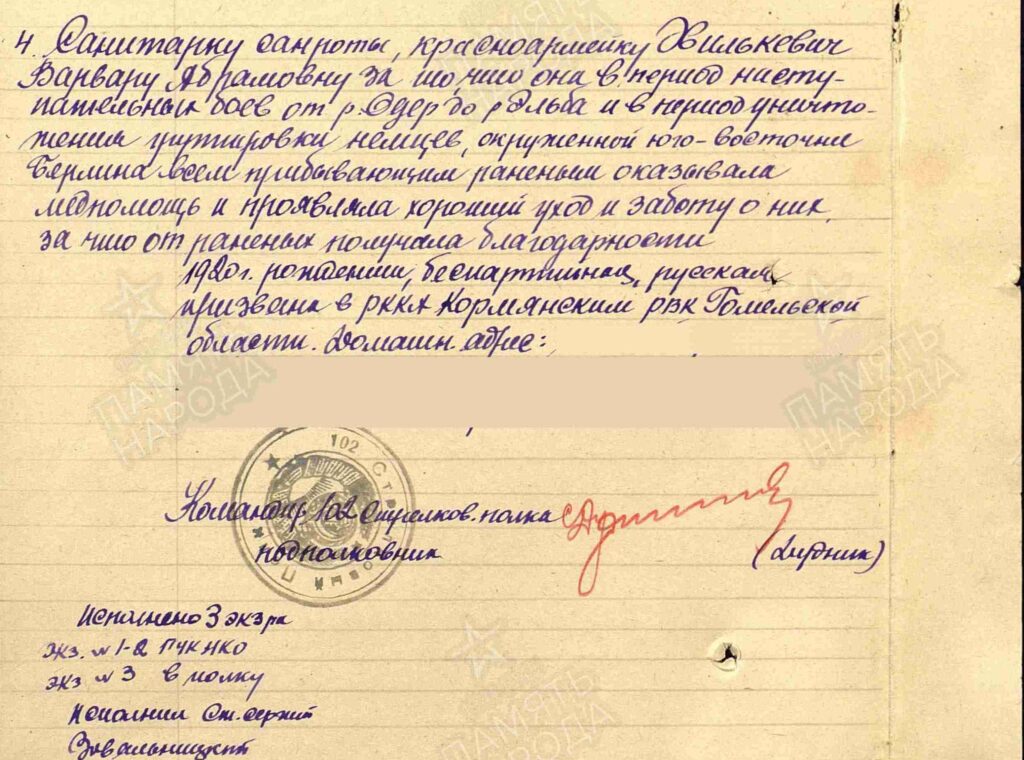 4. Санитарку санроты, красноармейку Хилькевич
Варвару Абрамовну за то, что она в период насту-
пательных боев от р. Одер до р Эльба и в период уничто-
жения группировки немцев, окруженной юго-восточнее
Берлина всем прибывающим раненым оказывала
медпомощь и проявляла хороший уход и заботу о них,
за что от раненых получала благодарности
1920 г. рождения, беспартийная, русская
призвана в РККА Кормянским РВК Гомельской
области. Домашн. адрес:
102 Стрелковый Полк
Командир 102 Стрелков. полка
подполковник
Исполнено 3 экз-ра
экз. № 1-2 ГУК НКО
экз № 3 в полку
Исполнил Ст. сержант
ПАМЯТЬ НАРОДА
ПАМЯТЬ НАРОДА
ПАМЯТЬ НАРОДА